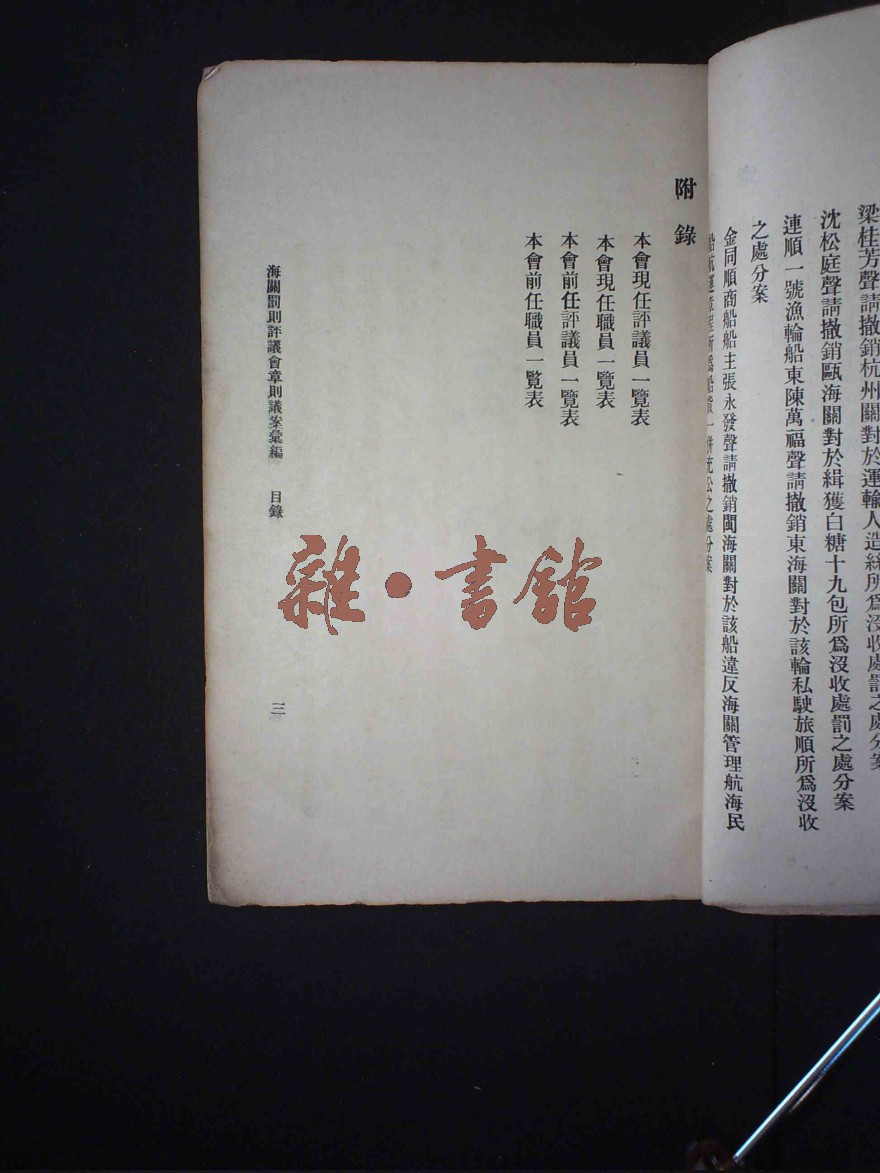 梁桂芳聲請撤銷杭州關對於運輸人造絲所爲沒收處罰之處分案
沈松庭聲請撤銷甌海關對於緝獲白糖十九包所爲沒收處罰之處分案
連順一號漁輪船東陳萬福聲請撤銷東海關對於該輪私駛旅順所爲沒收
之處分案
金同順商船船主張永發聲請撤銷閩海關對於該船違反海關管理航海民
船航運章程所爲船貨一併充公之處分案
附錄
本會現任評議員一覽表
本會現任職員一覽表
本會前任評議員一覽表
本會前任職員一覽表
海關罰則評議會章則議案彙編 目錄
三
雜·書館